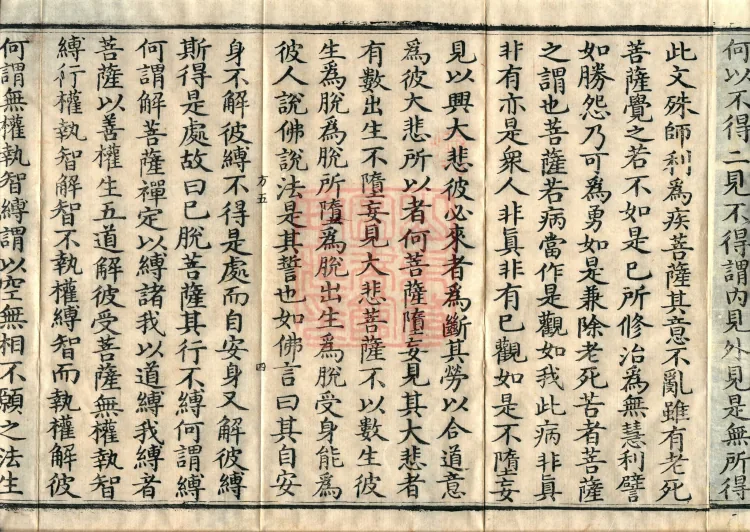 何以不得二見不得謂内見外見是無所得
此文殊師利為疾菩薩其意不亂雖有老死
菩薩覺之若不如是已所修治為無慧利譬
如勝怨乃可為勇如是兼除老死苦者菩薩
之謂也菩薩若病當作是觀如我此病非真
非有亦是衆人非真非有已觀如是不墮妄
見以興大悲彼必來者為斷其勞以合道意
為彼大悲所以者何菩薩墮妄見其大悲者
有數出生不墮妄見大悲菩薩不以數生彼
生為脫為脫所墮為脫出生為脫受身能為
彼人說佛說法是其誓也如佛言曰其自安
方五
四
身不解彼縛不得是處而自安身又解彼縛
斯得是處故曰已脫菩薩其行不縛何謂縛
何謂解菩薩禪定以縛諸我以道縛我縛者
菩薩以善權生五道解彼受菩薩無權執智
縛行權執智解智不執權縛智而執權解彼
何謂無權執智縛謂以空無相不願之法生